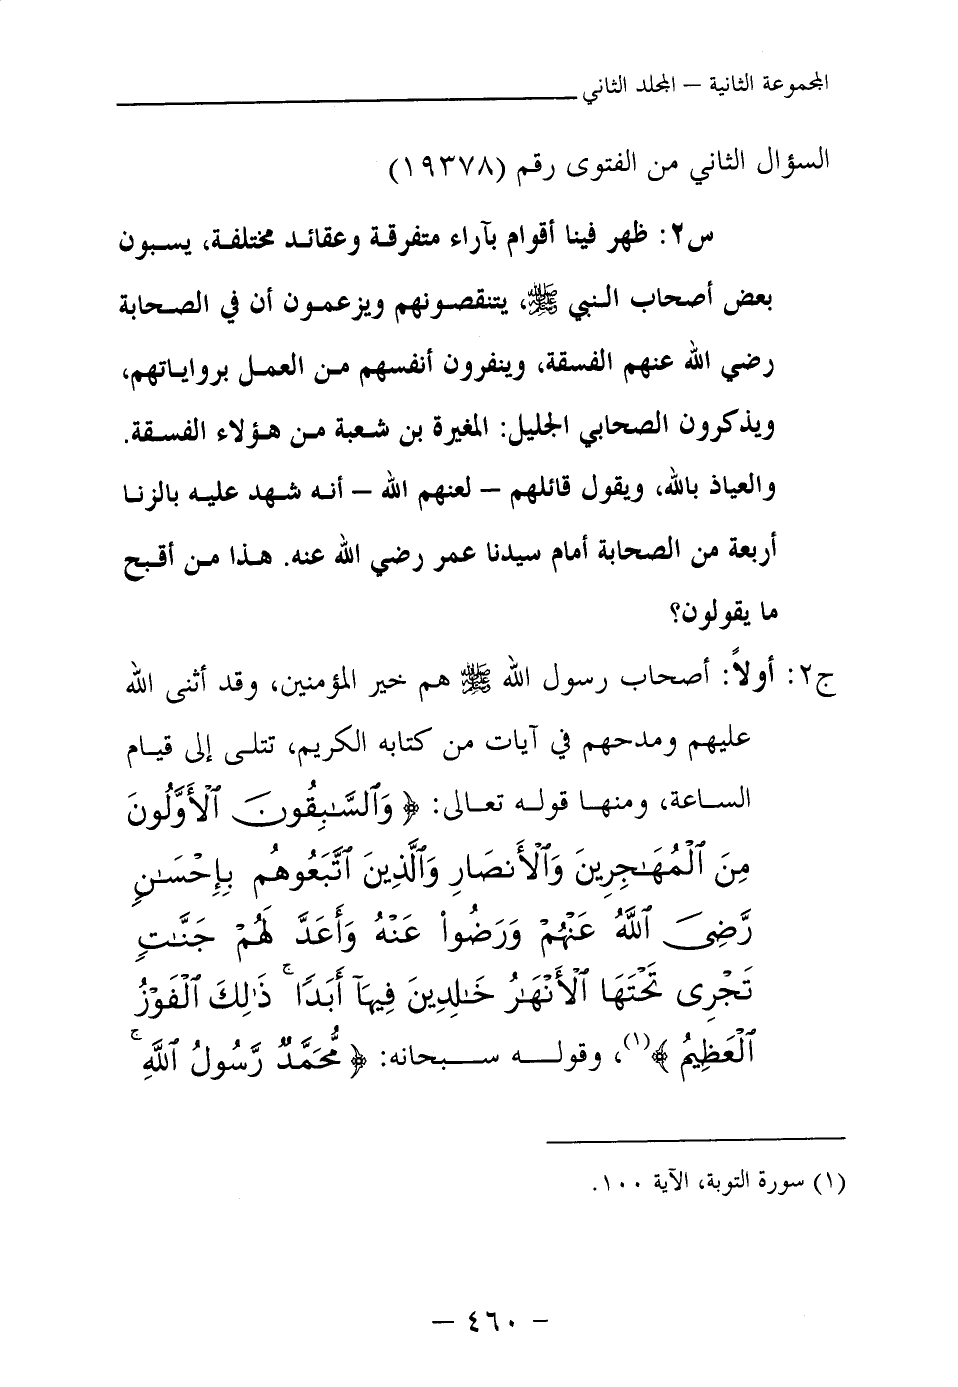 المجموعة الثانية – المجلد الثاني
السؤال الثاني من الفتوى رقم (١٩٣٧٨)
س٢: ظهر فينا أقوام بآراء متفرقة وعقائد مختلفة، يسبون
بعض أصحاب النبي ﷺ، يتنقصونهم ويزعمون أن في الصحابة
رضي الله عنهم الفسقة، وينفرون أنفسهم من العمل برواياتهم،
ويذكرون الصحابي الجليل: المغيرة بن شعبة من هؤلاء الفسقة.
والعياذ بالله، ويقول قائلهم – لعنهم الله – أنه شهد عليه بالزنا
أربعة من الصحابة أمام سيدنا عمر رضي الله عنه. هذا من أقبح
ما يقولون؟
ج٢: أولاً: أصحاب رسول الله ﷺ هم خير المؤمنين، وقد أثنى الله
عليهم ومدحهم في آيات من كتابه الكريم، تتلى إلى قيام
الساعة، ومنها قوله تعالى: ﴿ وَٱلسَّـٰبِقُونَ ٱلْأَوَّلُونَ
مِنَ ٱلْمُهَـٰجِرِينَ وَٱلْأَنصَارِ وَٱلَّذِينَ ٱتَّبَعُوهُم بِإِحْسَـٰنٍ
رَّضِىَ ٱللَّهُ عَنْهُمْ وَرَضُوا۟ عَنْهُ وَأَعَدَّ لَهُمْ جَنَّـٰتٍ
تَجْرِى تَحْتَهَا ٱلْأَنْهَـٰرُ خَـٰلِدِينَ فِيهَآ أَبَدًا ۚ ذَٰلِكَ ٱلْفَوْزُ
ٱلْعَظِيمُ ﴾(١)، وقوله سبحانه: ﴿ مُّحَمَّدٌ رَّسُولُ ٱللَّهِ ۚ
(١) سورة التوبة، الآية ١٠٠.
– ٤٦٠ –